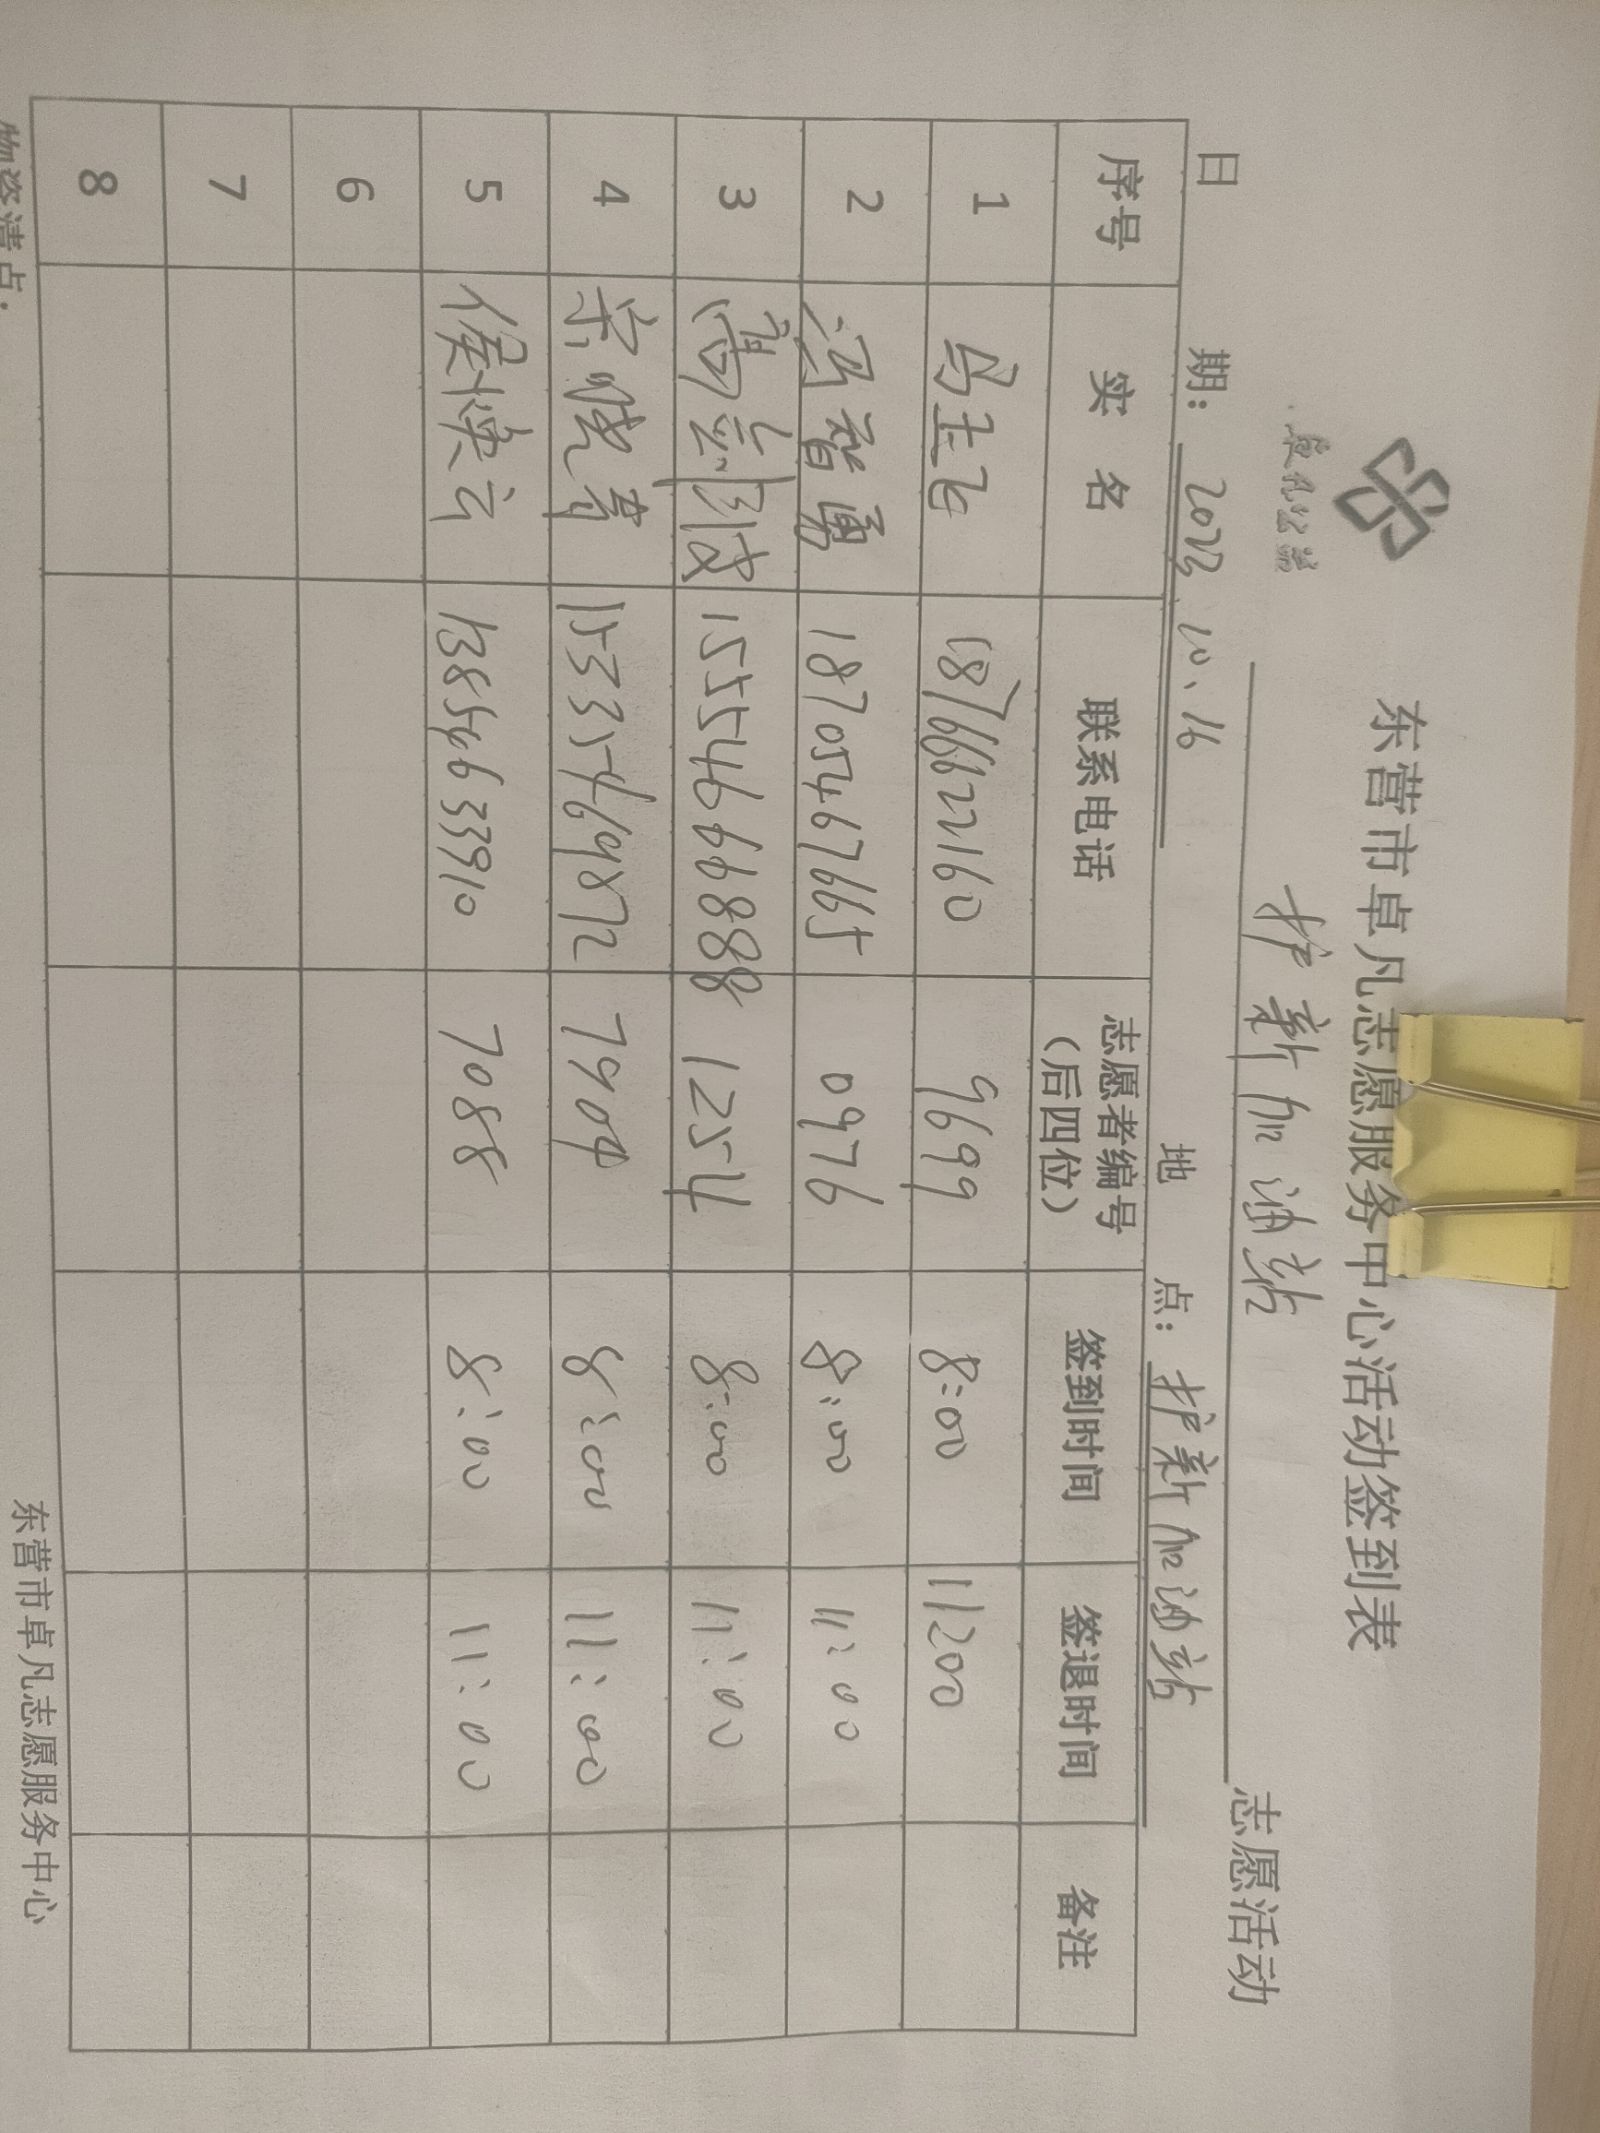 卓凡公益
东营市卓凡志愿服务中心活动签到表
护薪加油站 志愿活动
日 期: 2023.10.16 地 点: 护薪加油站
序号 实 名 联系电话 志愿者编号(后四位) 签到时间 签退时间 备注
1 18766622160 9699 8:00 11:00
2 冯智勇 18705467665 0976 8:00 11:00
3 15554666888 1254 8:00 11:00
4 宋晓青 15335469872 7904 8:00 11:00
5 侯焕云 13854633910 7088 8:00 11:00
6
7
8
物资清点:
东营市卓凡志愿服务中心